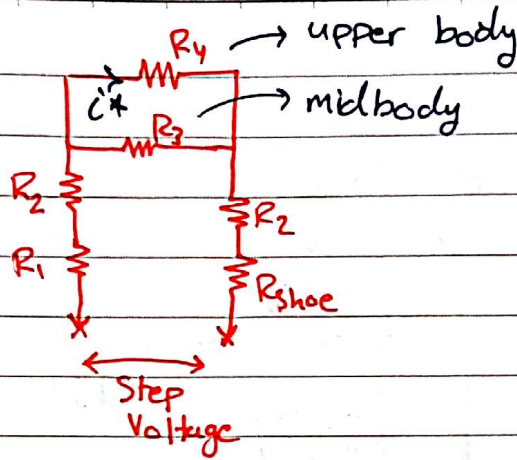 R4 → upper body
i*
R3 → midbody
R2
R2
R1
Rshoe
Step
Voltage